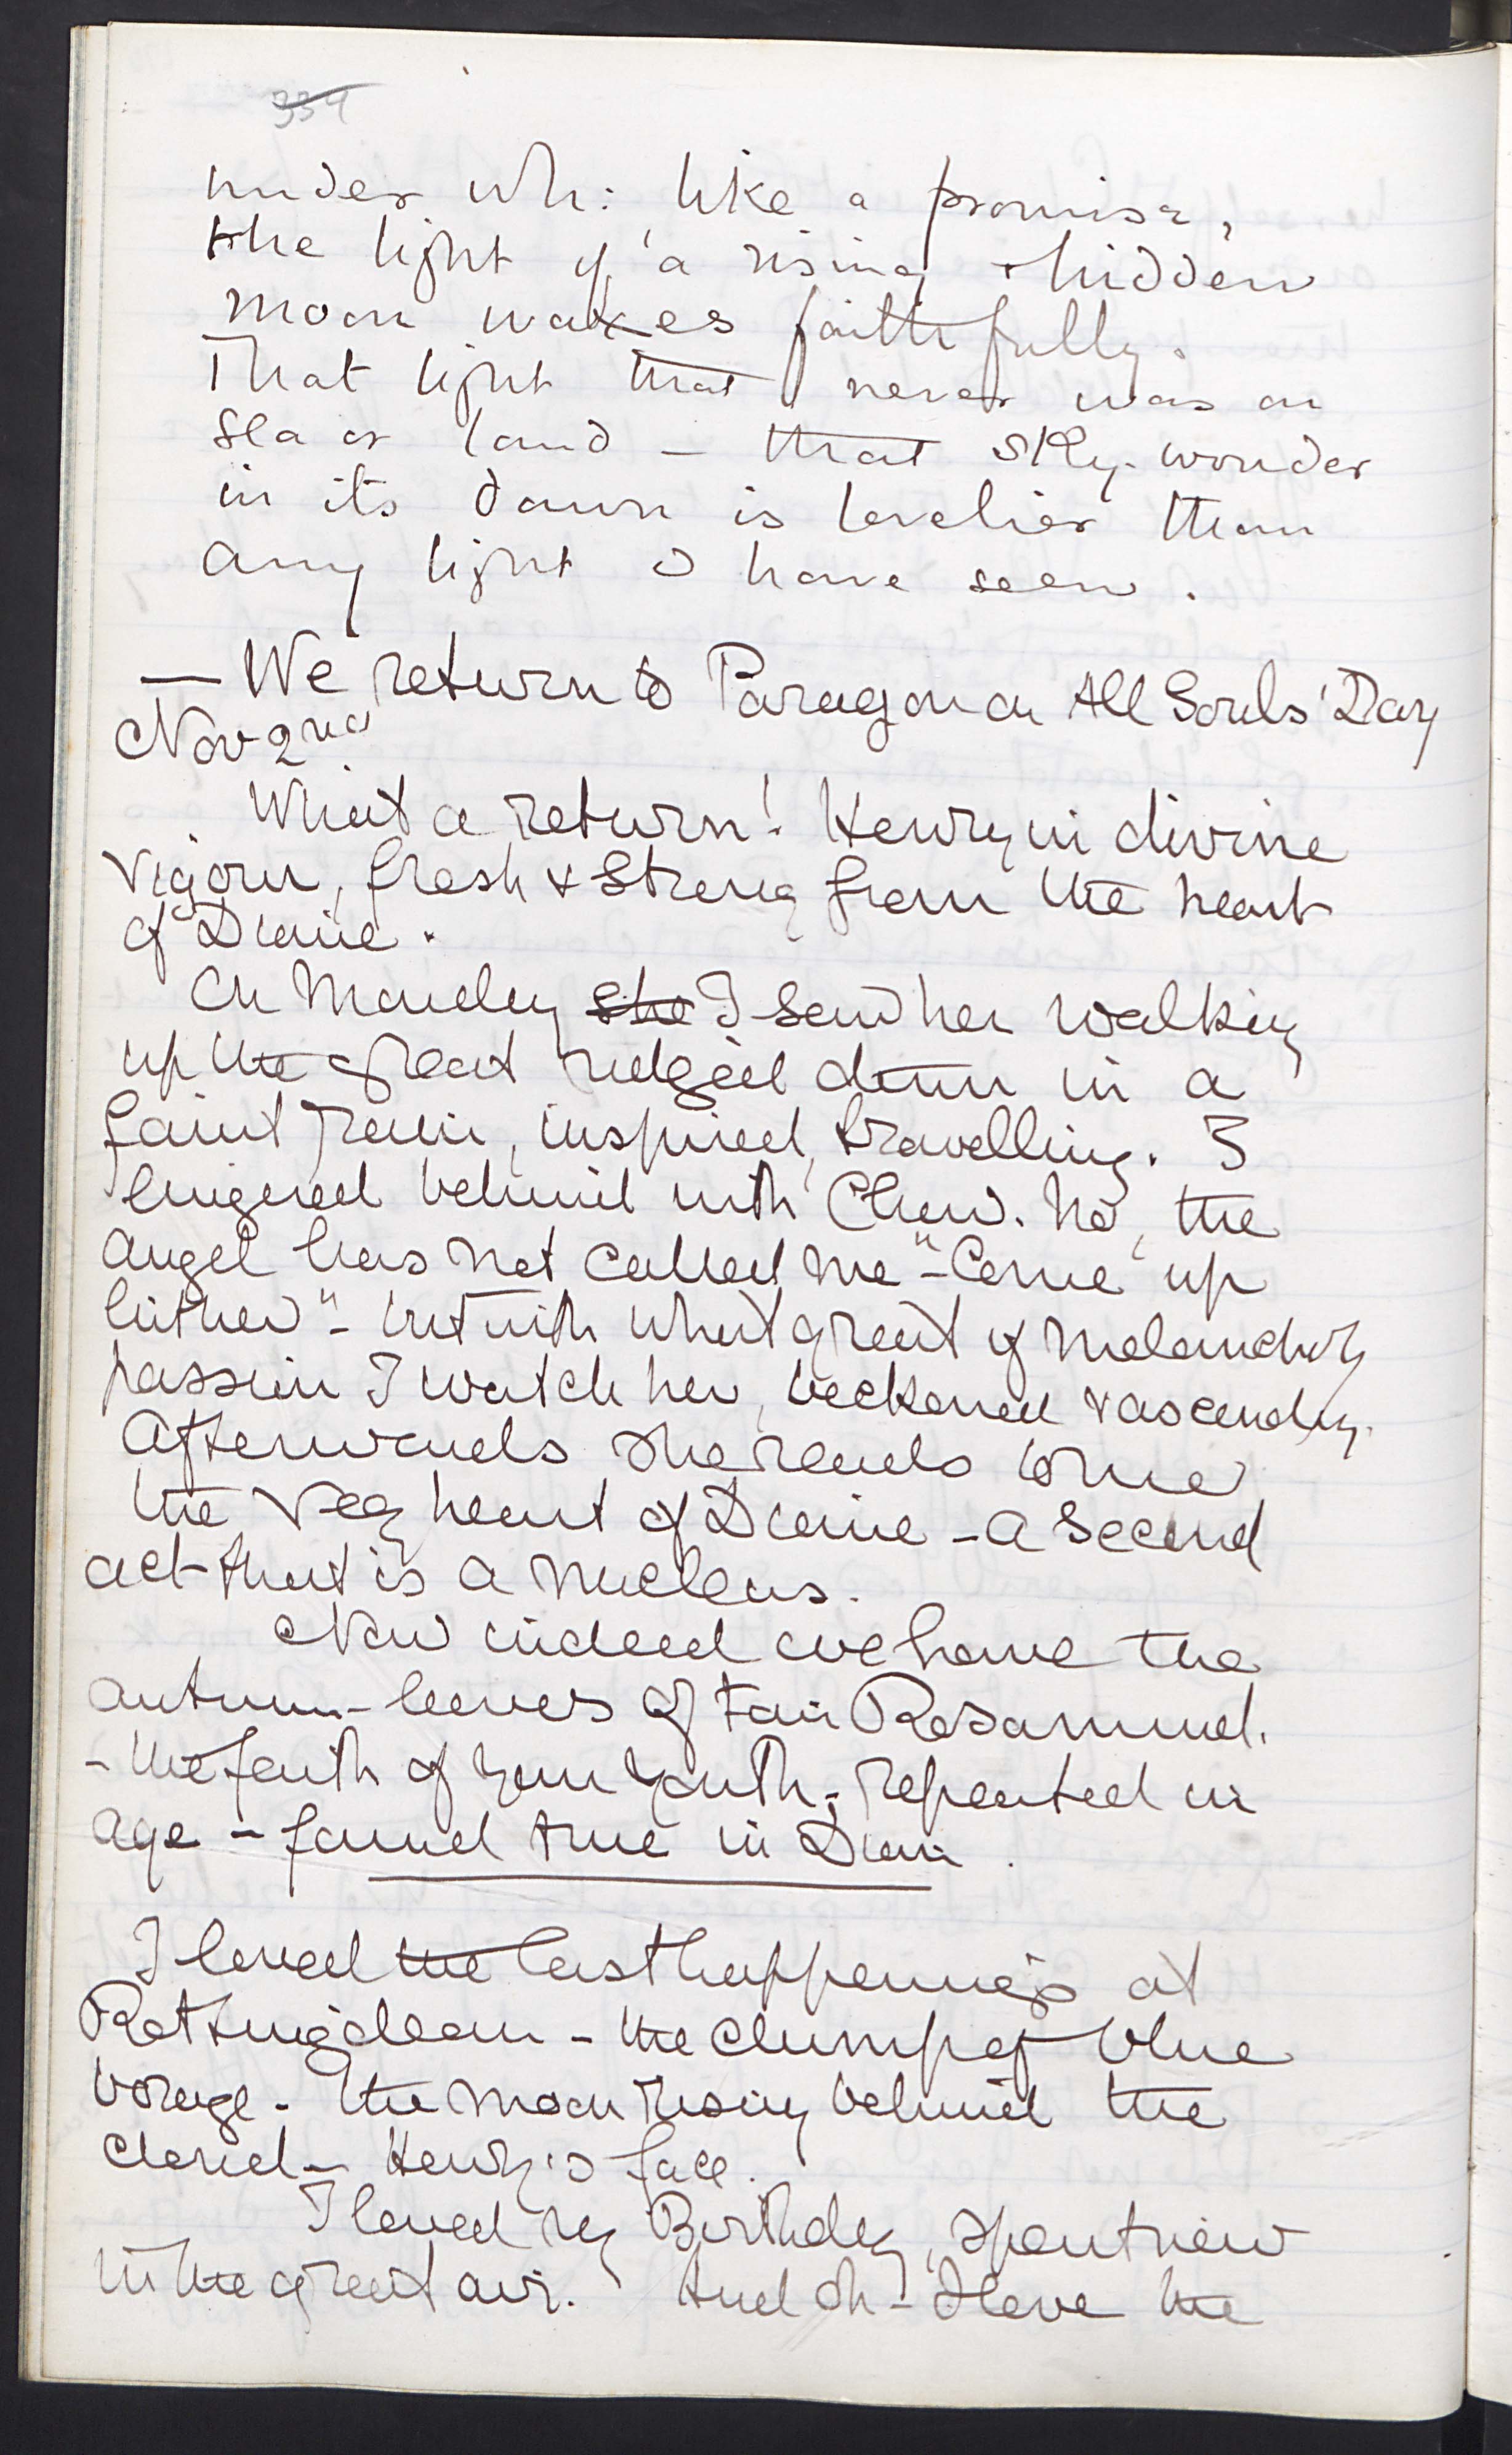 334
under wh: like a promise,
the light of a rising & hidden
moon waxes faithfully.
That light that never was on
sea or land – that sky-wonder
in its dawn is lovelier than
any light I have seen.
— We return to Paragon on All Souls' Day
Nov 2nd
What a return! Henry in divine
vigour, fresh & strong from the heart
of Diane.
On Monday she I saw her walking
up the great ridged down in a
faint rain, inspired, travelling. I
lingered behind with Chow. No, the
angel has not called me "– Come up
hither" – but with what great of melancholy
passion I watch her, beckoned & ascending.
Afterwards she reads to me
the very heart of Diane – a second
act that is a nucleus.
Now indeed we have the
autumn-leaves of Fair Rosamund.
– the faith of your youth – repeated in
age – found true in Dian.
I loved the last happenings at
Rottingdean – the clump of blue
borage – the moon rising behind the
cloud – Henry's face.
I loved my Birthday, spent
in the great air. And oh – I love the